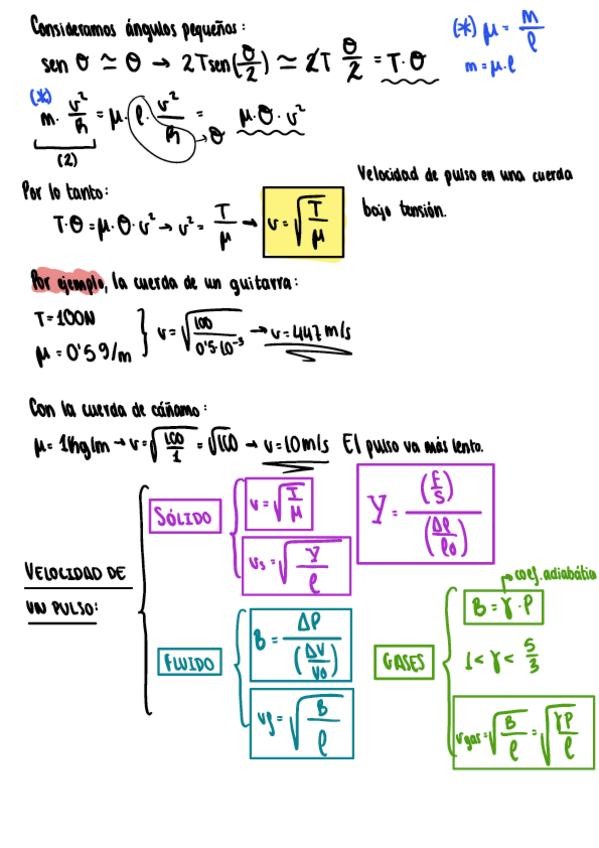 Consideramos ángulos pequeños:
(*) μ = m/ℓ
sen θ ≃ θ → 2Tsen(θ/2) ≃ 2T θ/2 = T·θ
m = μ·ℓ
(*)
m· v²/R = μ·ℓ· v²/R = μ·θ·v²
→ θ
(2)
Por lo tanto:
T·θ = μ·θ·v² → v² = T/μ → v = √(T/μ)
Velocidad de pulso en una cuerda
bajo tensión.
Por ejemplo, la cuerda de un guitarra:
T = 100N
μ = 0'5g/m
} v = √(100/0'5·10⁻³) → v = 447 m/s
Con la cuerda de cáñamo:
μ = 1kg/m → v = √(100/1) = √100 → v = 10m/s El pulso va más lento.
VELOCIDAD DE
UN PULSO:
SÓLIDO
v = √(T/μ)
vs = √(Y/ρ)
Y = (F/S)/(Δℓ/ℓ0)
FLUIDO
B = ΔP/(ΔV/V0)
vf = √(B/ρ)
GASES
coef. adiabático
B = γ·P
1 < γ < 5/3
vgas = √(B/ρ) = √(γP/ρ)